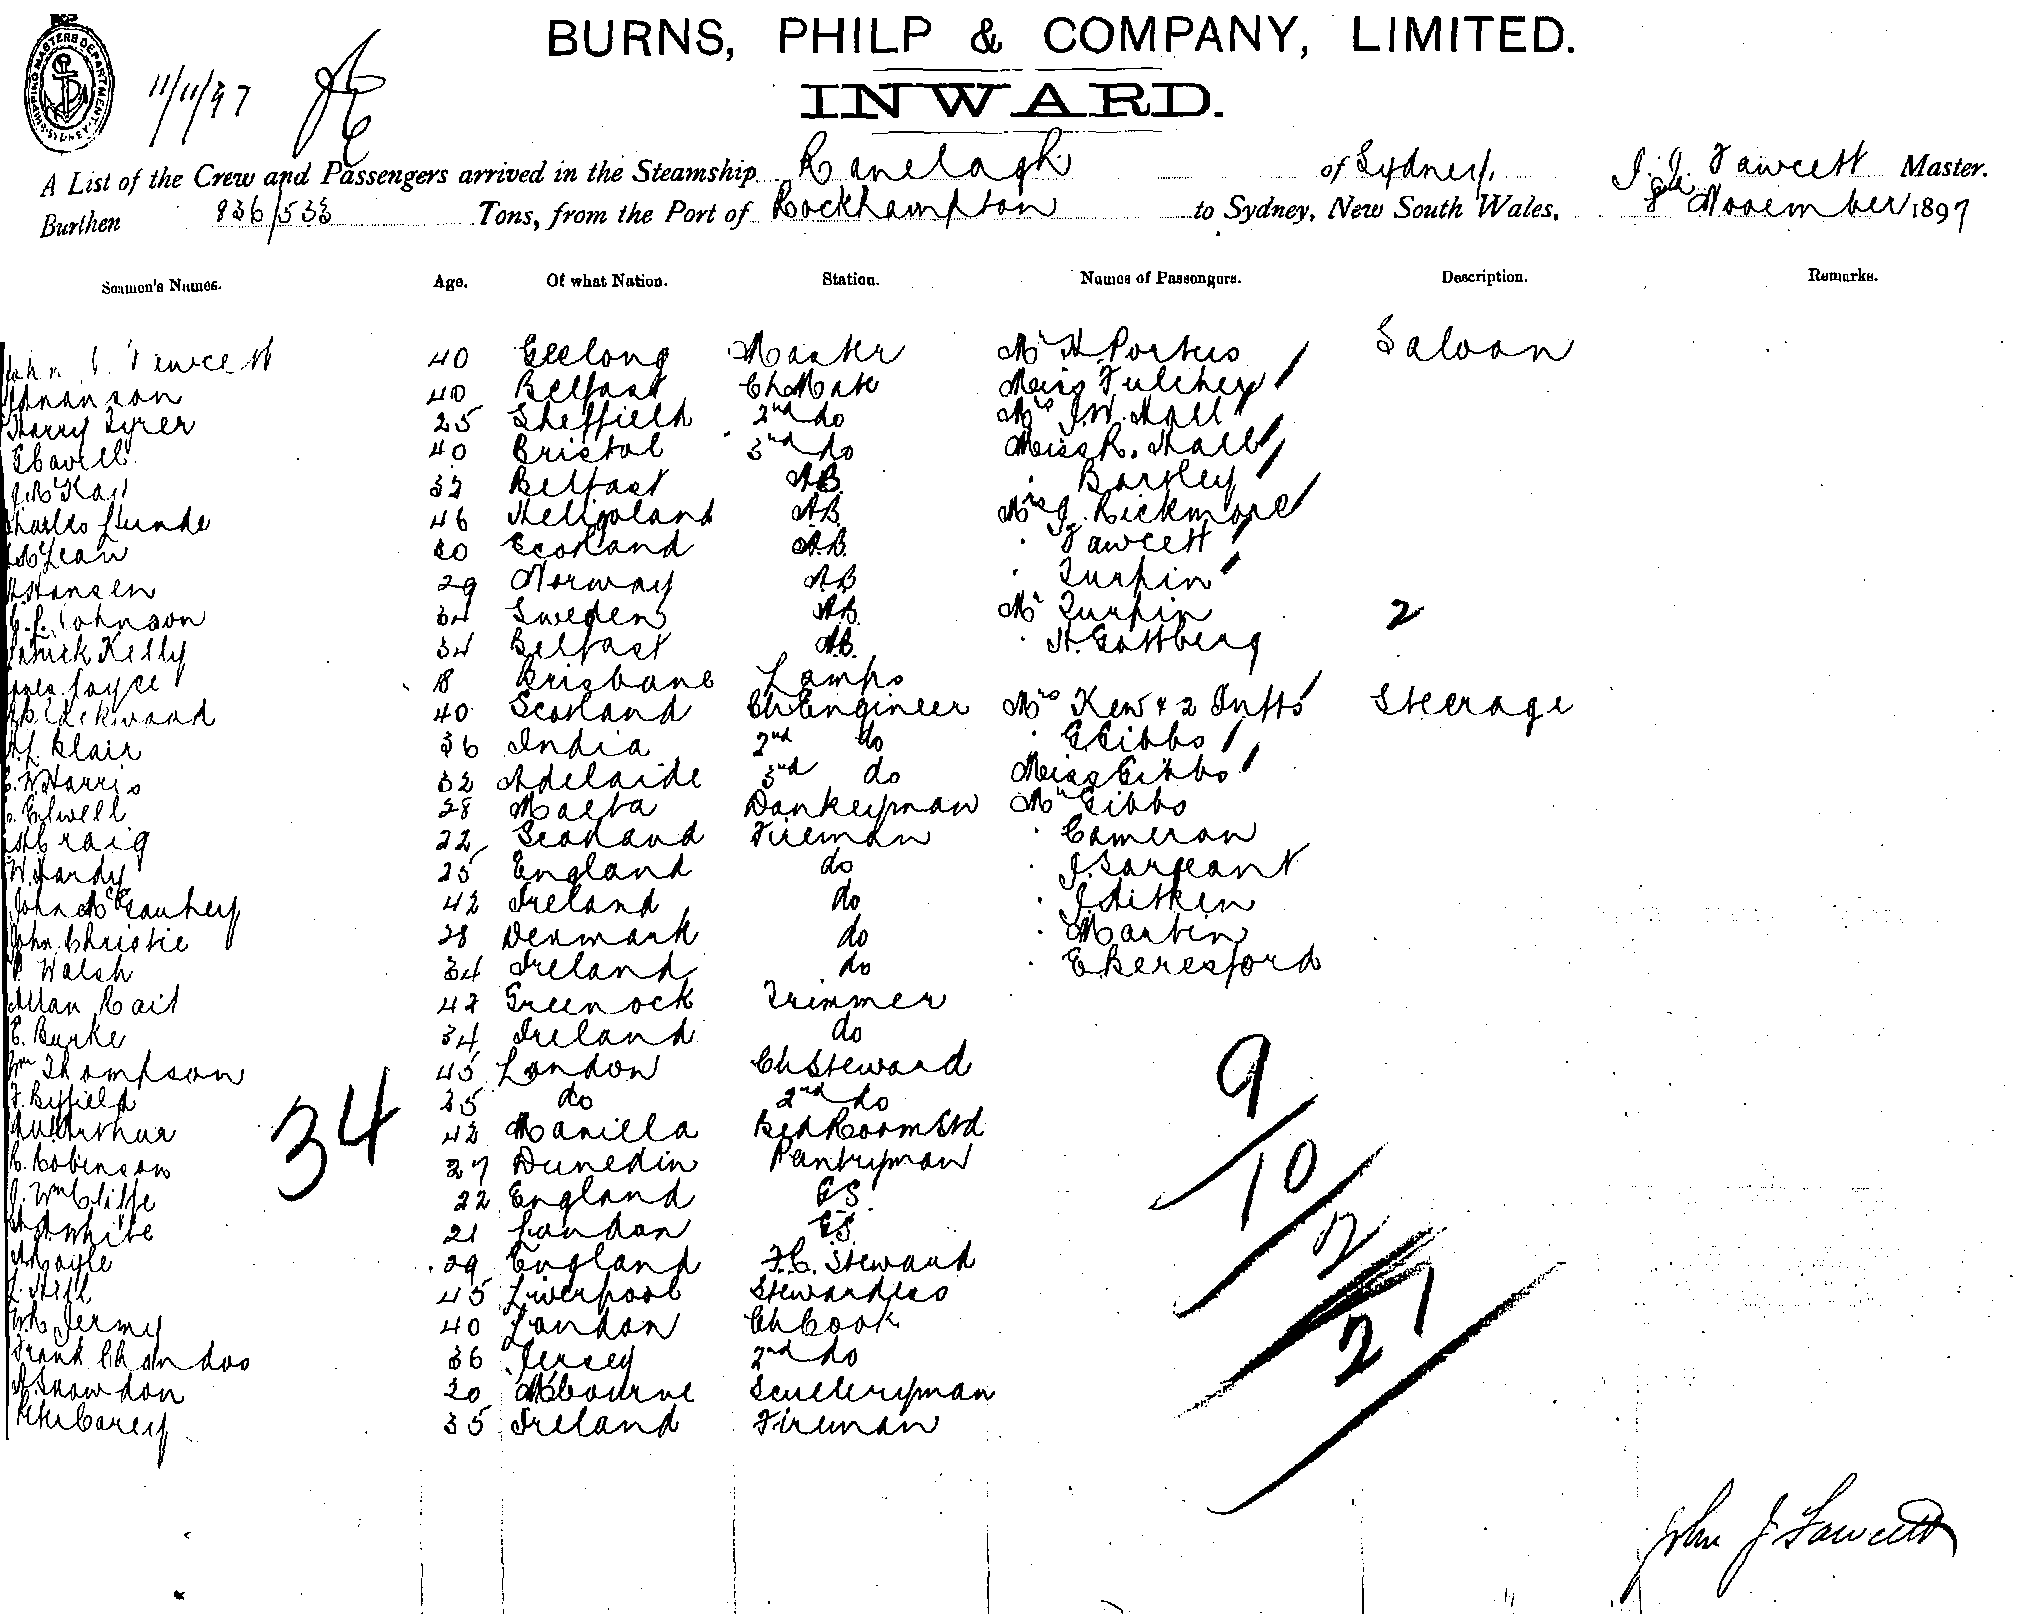 BURNS, PHILP & COMPANY, LIMITED.
INWARD.
SHIPPING MASTERS DEPARTMENT
11/11/97
A List of the Crew and Passengers arrived in the Steamship Ranelagh of Sydney, J. J. Fawcett Master.
Burthen 836/533 Tons, from the Port of Rockhampton to Sydney, New South Wales, November 1897
Seamen's Names. Age. Of what Nation. Station. Names of Passengers. Description. Remarks.
John J. Fawcett 40 Geelong Master Mr H. Porteus Saloon
Adnanson 40 Belfast Ch Mate Miss Fulcher
Harry Tyrer 25 Sheffield 2nd do Mrs J.W. Hall
Cavell 40 Bristol 3rd do Miss R. Hall
J McKay 32 Belfast AB " Bartley
Charles Lunde 46 Heligoland AB Mrs J. Rickmore
McLean 20 Scotland AB. " Fawcett
Hansen 29 Norway AB " Turpin
Johnson 34 Sweden AB. Mr Turpin 2
Patrick Kelly 34 Belfast AB. " H. Gottberg
Joyce 18 Brisbane Lamps
Blackwood 40 Scotland Ch Engineer Mrs Kew & 2 Infts Steerage
Blair 36 India 2nd do " E Gibbs
W Harris 32 Adelaide 3rd do Miss Gibbs
Elwell 28 Malta Donkeyman Mr Gibbs
Craig 22 Scotland Fireman " Cameron
W. Hardy 25 England do " J. Sargeant
John McGauhey 42 Ireland do " J Aitken
John Christie 28 Denmark do " Martin
Walsh 34 Ireland do " E Beresford
Allan Rait 42 Greenock Trimmer
E. Burke 34 Ireland do
Wm Thompson 45 London Ch Steward
F. Byfield 25 do 2nd do
McArthur 42 Manilla Bed Room Std
R. Robinson 27 Dunedin Pantryman
J. Wm Cliffe 22 England GS.
White 21 London GS.
29 England F.C. Steward
L. Hill 45 Liverpool Stewardess
Jermy 40 London Ch Cook
Frank Chandos 36 Jersey 2nd do
Snowdon 20 Melbourne Sculleryman
Carey 35 Ireland Fireman
34
9
10
2
21
John J Fawcett